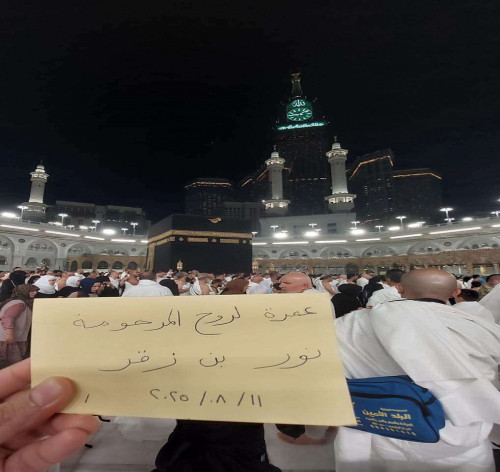 عمرة لروح المرحومة
نور بن زقر
٢٠٢٥/٠٨/١١
البلد الأمين